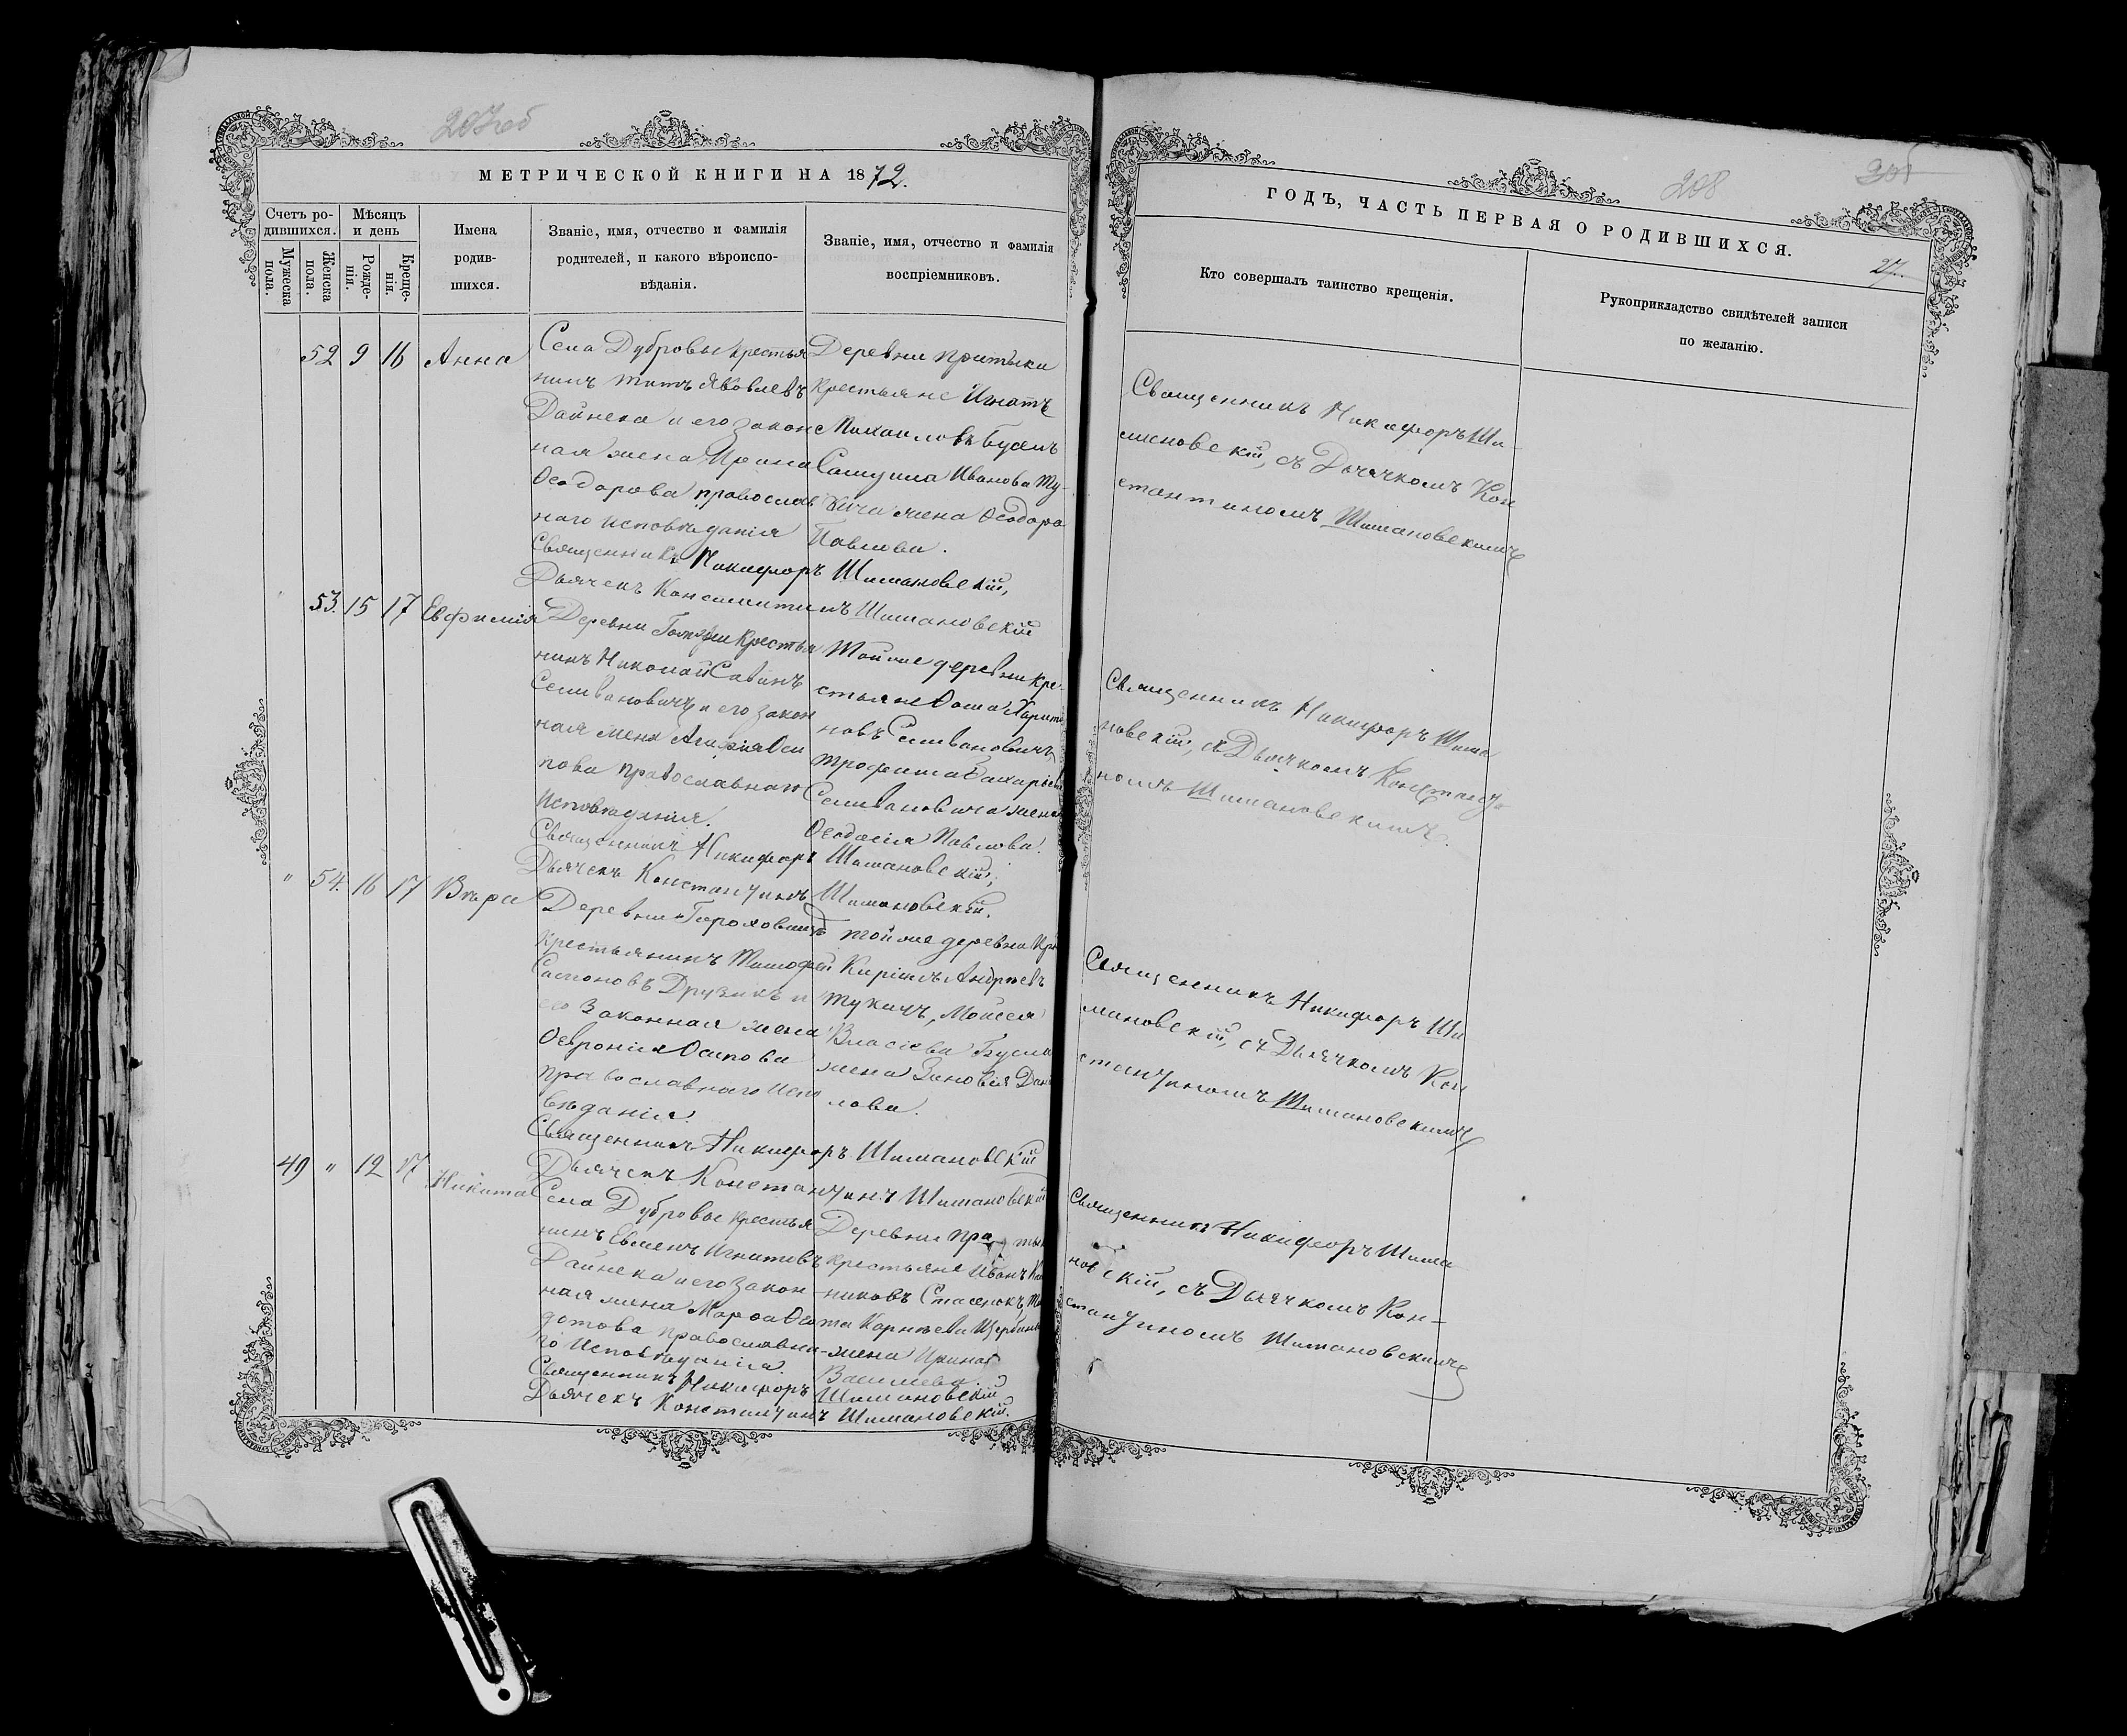 207об
МЕТРИЧЕСКОЙ КНИГИ НА 1872.
Счетъ родившихся.
Мужеска пола.
Женска пола.
Мѣсяцъ и день
Рожденія.
Крещенія.
Имена родившихся.
Званіе, имя, отчество и фамилія
родителей, и какого вѣроиспо-
вѣданія.
Званіе, имя, отчество и фамилія
воспріемниковъ.
52 9 16 Анна
Села Дубровы крестья
нинъ Титъ Яковлевъ
Дайнека и его закон
ная жена Ирина
Ѳеодорова православ
наго исповѣданія
Деревни Притыки
крестьяне Игнатъ
Михаиловъ
Иванова
жена Ѳеодора
Павлова.
Священникъ Никифоръ Шимановскій,
Дьячекъ Константинъ Шимановскій
53. 15 17 Евфимія
Деревни крестья
нинъ Николай Савинъ
Селивановичъ и его закон
ная жена Оси
пова православнаго
Исповѣданія.
Той же деревни кре-
стьяне Ѳома Харито
новъ Селивановичъ
Трофима Захарьева
Селивановича жена
Ѳеодосія Павлова.
Священникъ Никифоръ Шимановскій,
Дьячекъ Константинъ Шимановскій.
" 54. 16 17 Вѣра
Деревни
крестьянинъ Тимофей
Друзикъ и
его законная жена
Ѳеѵронія Осипова
православнаго испо
вѣданія.
той же деревни кр
Кирилъ Андреевъ
Тукичъ, Моисея
Власіева Бусла
жена Зиновія Дани
лова.
Священникъ Никифоръ Шимановскій
Дьячекъ Константинъ Шимановскій
49 " 12 17 Никита
Села Дубровы крестья
нинъ Евменъ Игнатовъ
Дайнека и его закон
ная жена Марѳа Ѳео
дотова православна-
го Исповѣданія
Деревни
крестьяне Иванъ
никовъ Стасенокъ,
Карнѣева
жена Ирина
Васильева.
Священникъ Никифоръ Шимановскій
Дьячекъ Константинъ Шимановскій.
208
27.
ГОДЪ, ЧАСТЬ ПЕРВАЯ О РОДИВШИХСЯ.
Кто совершалъ таинство крещенія.
Рукоприкладство свидѣтелей записи
по желанію.
Священникъ Никифоръ Ши-
мановскій, съ Дьячкомъ Кон
стантиномъ Шимановскимъ
Священникъ Никифоръ Шима
новскій, съ Дьячкомъ Константи
номъ Шимановскимъ.
Священникъ Никифоръ Ши
мановскій, съ Дьячкомъ Кон
стантиномъ Шимановскимъ
Священникъ Никифоръ Шима
новскій, съ Дьячкомъ Кон-
стантиномъ Шимановскимъ